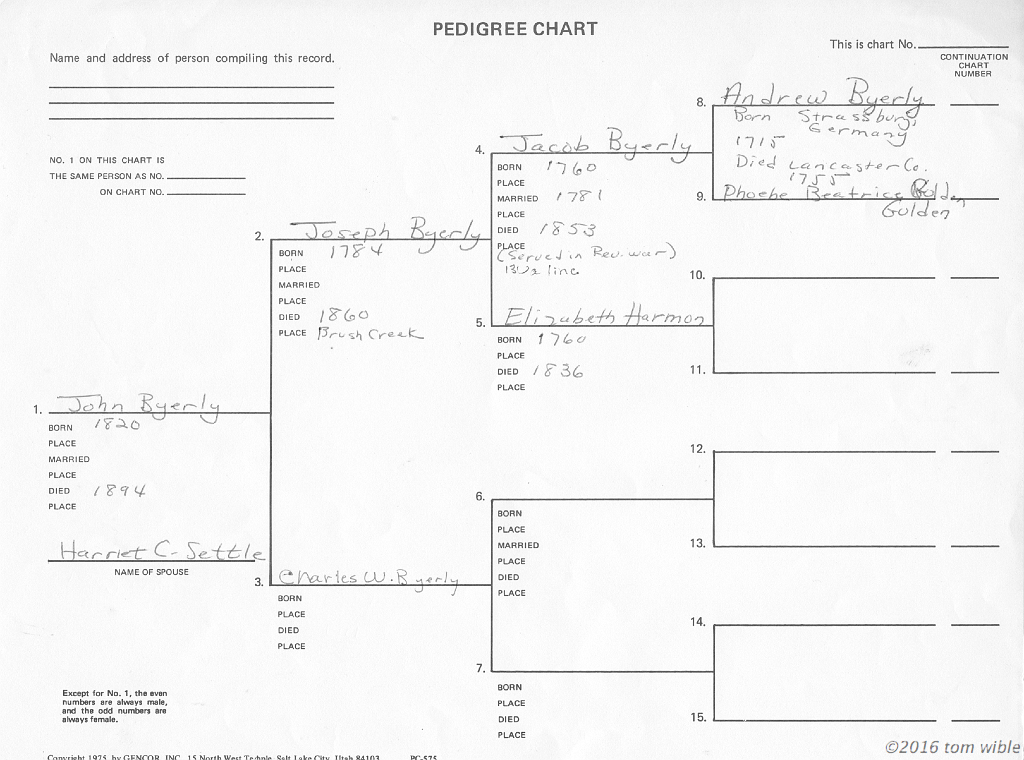 PEDIGREE CHART
This is chart No.
CONTINUATION
CHART
NUMBER
Name and address of person compiling this record.
NO. 1 ON THIS CHART IS
THE SAME PERSON AS NO.
ON CHART NO.
8. Andrew Byerly
Born Strassburg,
Germany
1715
Died Lancaster Co.
1755
9. Phoebe Beatrice Golden
Gulden
4. Jacob Byerly
BORN 1760
PLACE
MARRIED 1781
PLACE
DIED 1853
PLACE
(Served in Rev. war)
line
2. Joseph Byerly
BORN 1784
PLACE
MARRIED
PLACE
DIED 1860
PLACE Brush Creek
5. Elizabeth Harmon
BORN 1760
PLACE
DIED 1836
PLACE
10.
11.
1. John Byerly
BORN 1820
PLACE
MARRIED
PLACE
DIED 1894
PLACE
Harriet C- Settle
NAME OF SPOUSE
3. Charles W. Byerly
BORN
PLACE
DIED
PLACE
12.
6.
BORN
PLACE
MARRIED
PLACE
DIED
PLACE
13.
14.
7.
BORN
PLACE
DIED
PLACE
15.
Except for No. 1, the even
numbers are always male,
and the odd numbers are
always female.
Copyright 1975, by GENCOR, INC. 15 North West Temple, Salt Lake City, Utah 84103 PC-575
©2016 tom wible